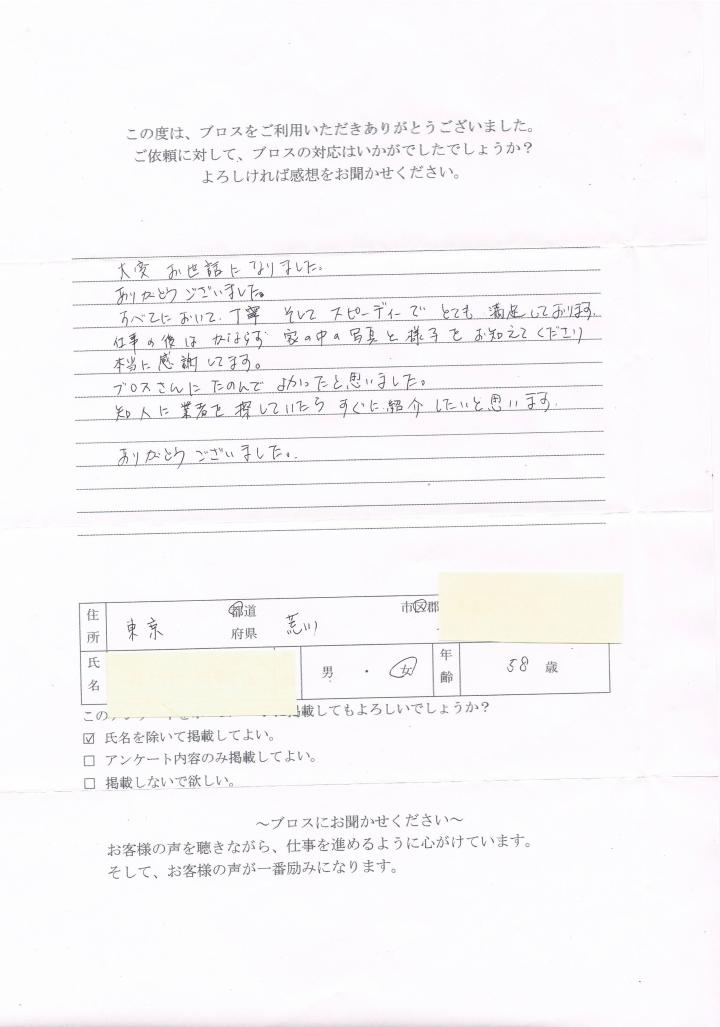 この度は、ブロスをご利用いただきありがとうございました。
ご依頼に対して、ブロスの対応はいかがでしたでしょうか？
よろしければ感想をお聞かせください。
大変 お世話に なりました。
ありがとうございました。
すべてにおいて、丁寧 そして スピーディーで とても 満足しております。
仕事の後は かならず 家の中の写真と様子を お知えてくださり
本当に感謝してます。
ブロスさんにたのんで よかったと思いました。
知人に業者を探していたら すぐに紹介したいと思います。
ありがとう ございました。
住所 東京 都道府県 荒川 市区郡
氏名 男 ・ 女 年齢 58 歳
この 掲載してもよろしいでしょうか？
☑ 氏名を除いて掲載してよい。
□ アンケート内容のみ掲載してよい。
□ 掲載しないで欲しい。
～ブロスにお聞かせください～
お客様の声を聴きながら、仕事を進めるように心がけています。
そして、お客様の声が一番励みになります。